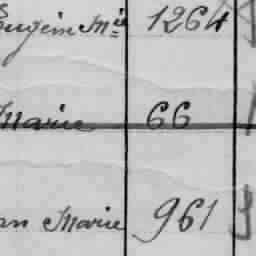 Eugène Mie 1264
Marie 66
an Marie 961